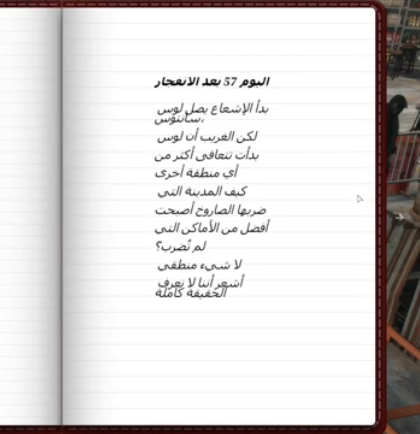 اليوم 57 بعد الانفجار
بدأ الإشعاع يصل لوس
سانتوس،
لكن الغريب أن لوس
بدأت تتعافى أكثر من
أي منطقة أخرى
كيف المدينة التي
ضربها الصاروخ أصبحت
أفضل من الأماكن التي
لم تُضرب؟
لا شيء منطقي
أشعر أننا لا نعرف
الحقيقة كاملة